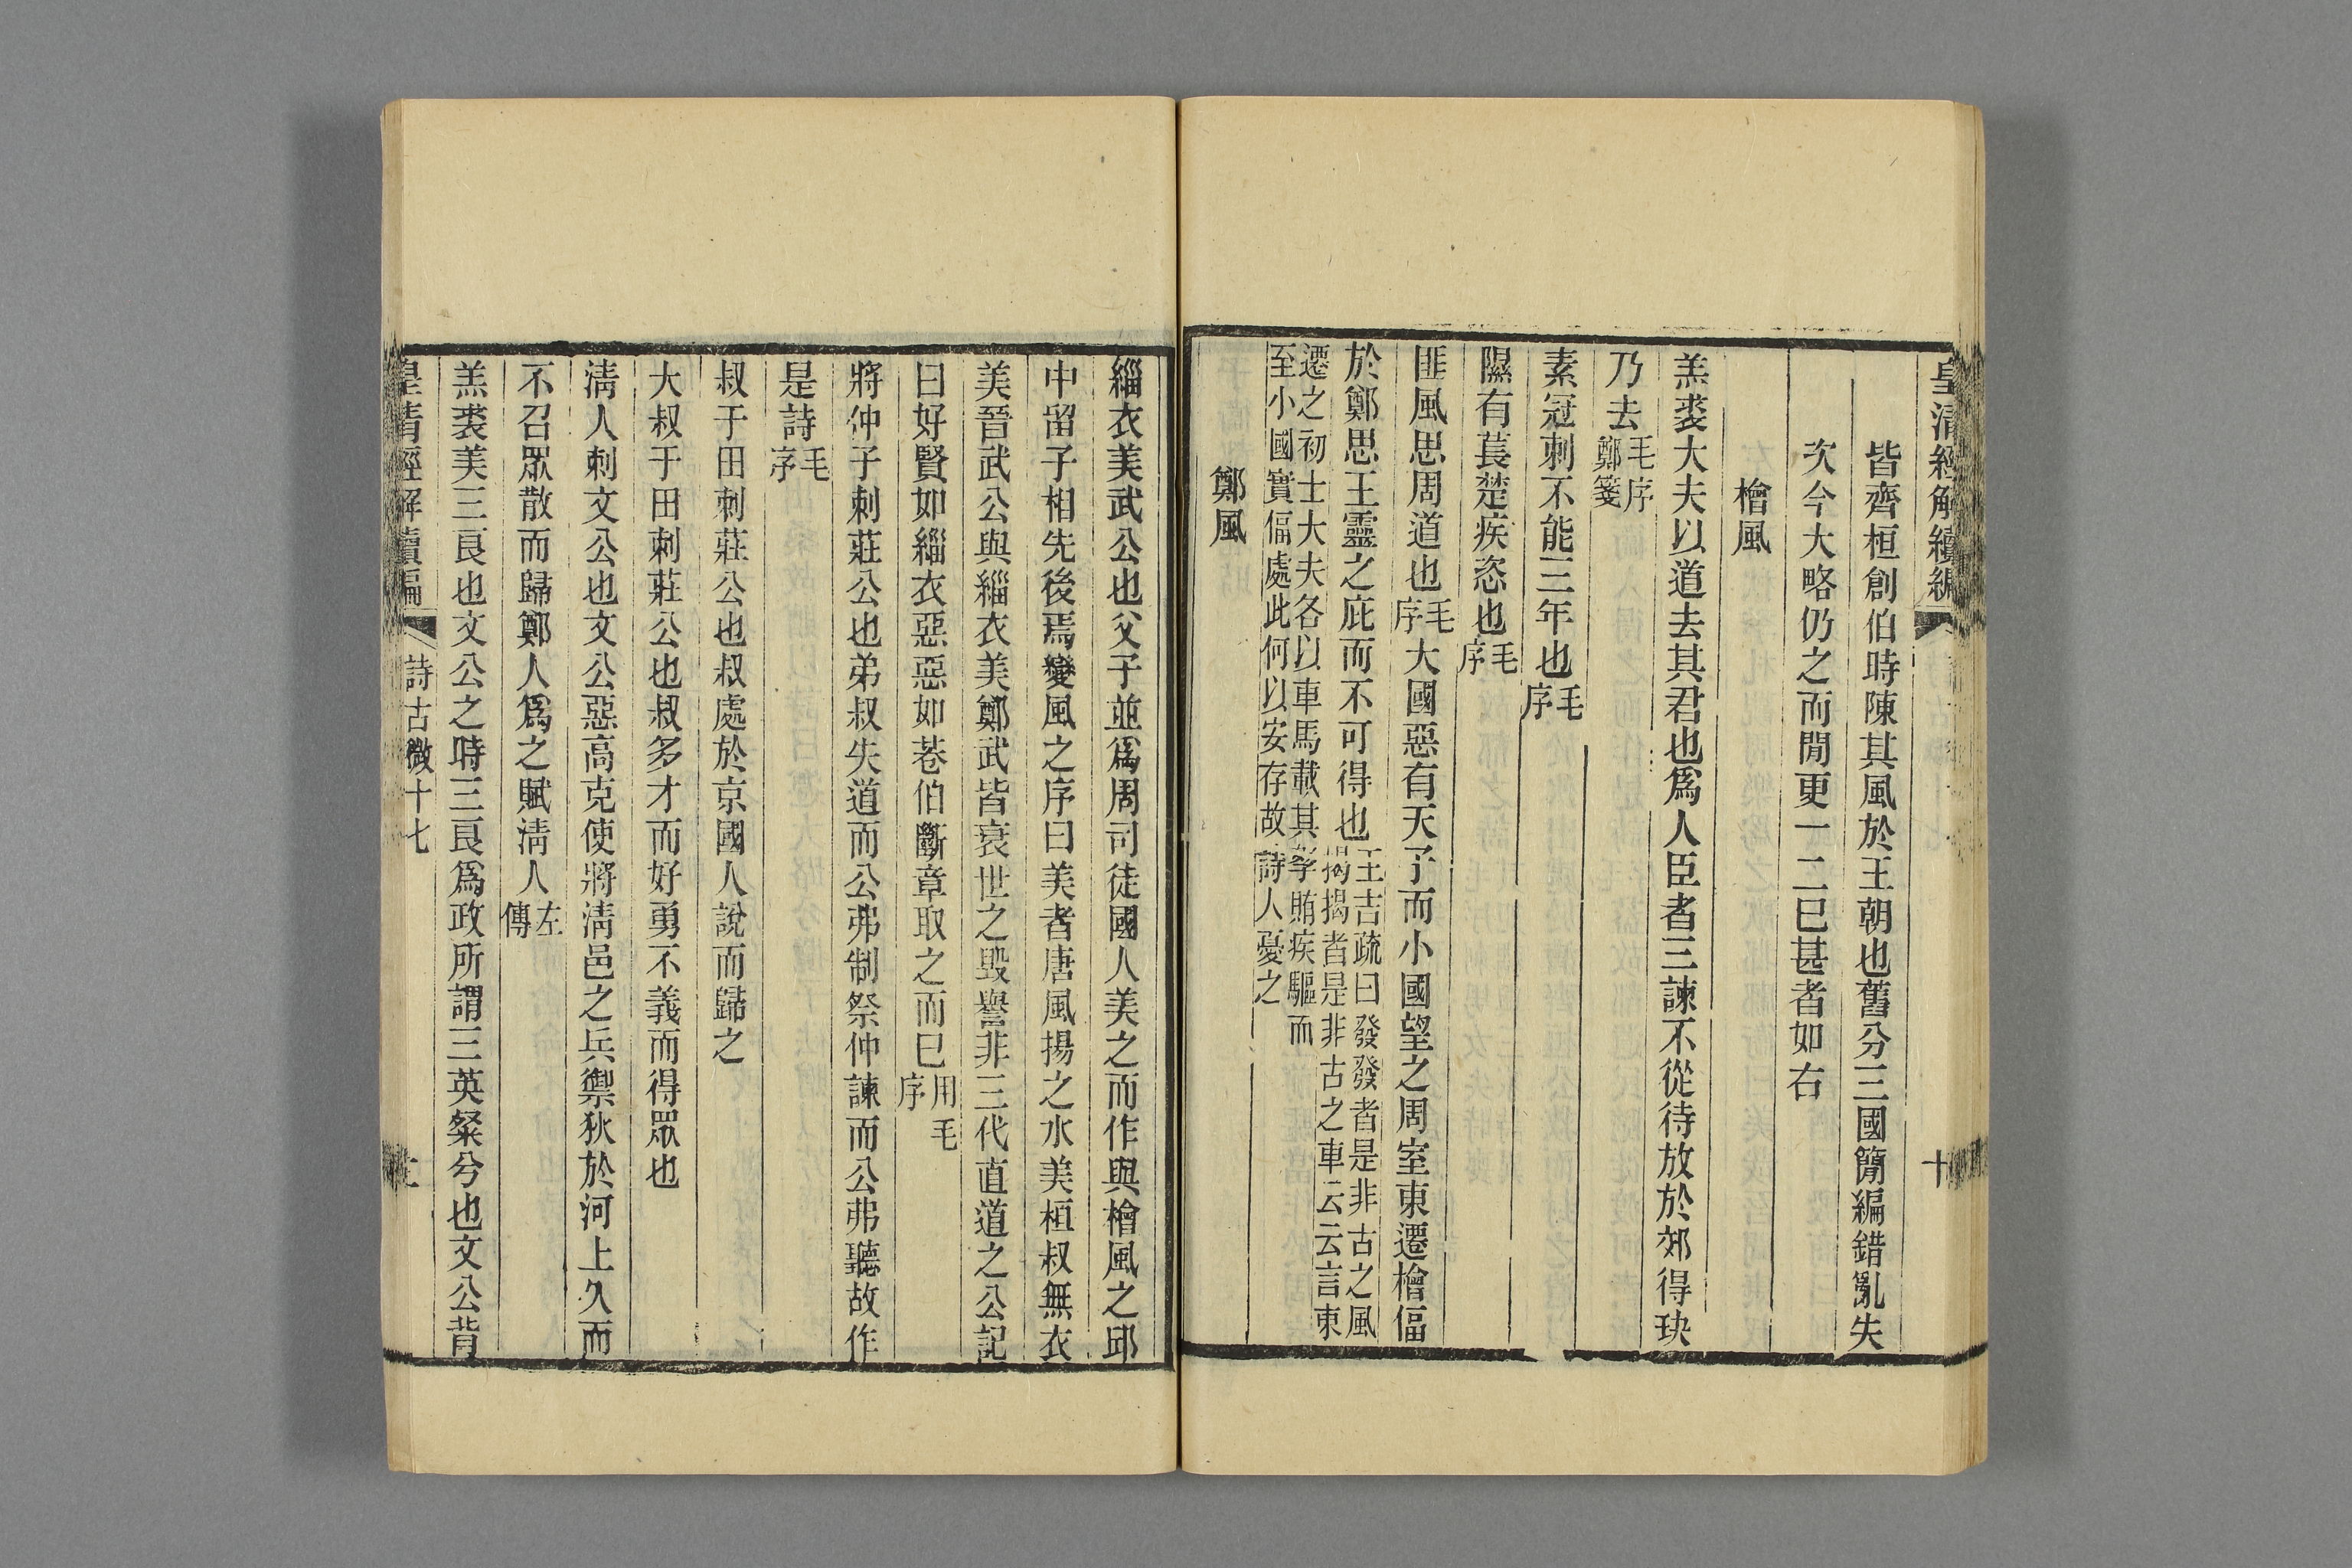 皇清經解續編 十
皆齊桓創伯時陳其風於王朝也舊分三國簡編錯亂失
次今大略仍之而閒更一二巳甚者如右
檜風
羔裘大夫以道去其君也爲人臣者三諫不從待放於郊得玦
乃去毛序鄭箋
素冠刺不能三年也毛序
隰有萇楚疾恣也毛序
匪風思周道也毛序大國惡有天子而小國望之周室東遷檜偪
於鄭思王靈之庇而不可得也王吉疏曰發發者是非古之風揭揭者是非古之車云云言東
遷之初士大夫各以車馬載其孥賄疾驅而至小國實偪處此何以安存故詩人憂之
鄭風
緇衣美武公也父子並爲周司徒國人美之而作與檜風之邱
中留子相先後焉變風之序曰美者唐風揚之水美桓叔無衣
美晉武公與緇衣美鄭武皆衰世之毀譽非三代直道之公記
曰好賢如緇衣惡惡如巷伯斷章取之而巳用毛序
將仲子刺莊公也弟叔失道而公弗制祭仲諫而公弗聽故作
是詩毛序
叔于田刺莊公也叔處於京國人說而歸之
大叔于田刺莊公也叔多才而好勇不義而得眾也
淸人刺文公也文公惡高克使將淸邑之兵禦狄於河上久而
不召眾散而歸鄭人爲之賦淸人左傳
羔裘美三良也文公之時三良爲政所謂三英粲兮也文公背
皇清經解續編 詩古微十七